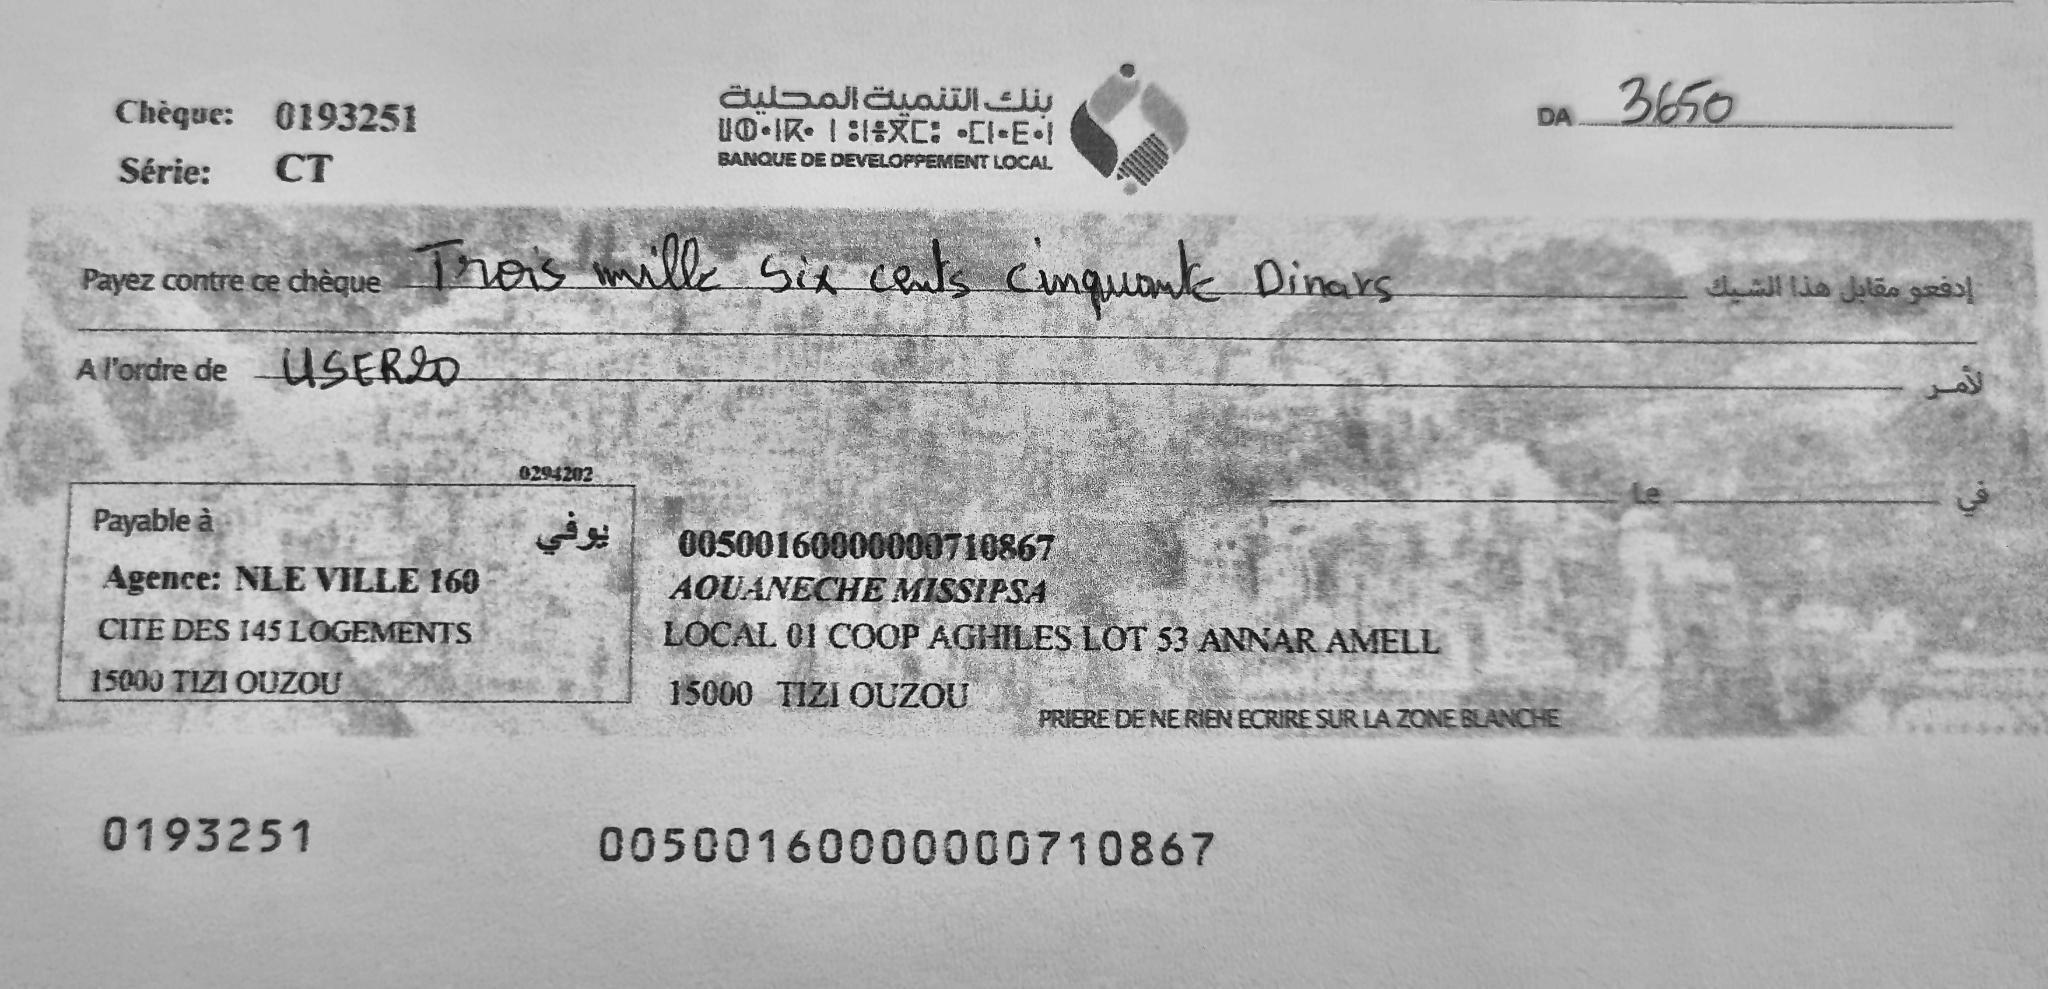 Chèque: 0193251
Série: CT
بنك التنمية المحلية
BANQUE DE DEVELOPPEMENT LOCAL
DA 3650
Payez contre ce chèque Trois mille six cents cinquante Dinars إدفعو مقابل هذا الشيك
A l'ordre de USER20 لأمر
0294202
Le في
Payable à يوفي
Agence: NLE VILLE 160
CITE DES 145 LOGEMENTS
15000 TIZI OUZOU
00500160000000710867
AOUANECHE MISSIPSA
LOCAL 01 COOP AGHILES LOT 53 ANNAR AMELL
15000 TIZI OUZOU
PRIERE DE NE RIEN ECRIRE SUR LA ZONE BLANCHE
0193251 00500160000000710867